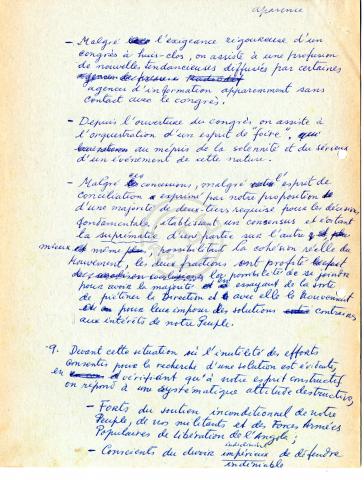 apparence
- Malgré l'exigeance rigoureuse d'un
congrès à huis-clos, on assiste à une profusion
de nouvelles tendancieuses diffusées par certaines
agences d'information apparemment sans
contact avec le congrès.
- Depuis l'ouverture du congrès on assiste à
l'orchestration d'un esprit de foire",
au mépris de la solennité et du sérieux
d'un événement de cette nature.
- Malgré concessions, malgré l'esprit de
conciliation exprimé par notre proposition
d'une majorité de deux-tiers requise pour les décisions
fondamentales, établissant un consensus et évitant
la suprématie d'une partie sur l'autre
mieux même, possibilitant la cohésion réelle du
Mouvement, les deux fractions ont profité
la possibilité de se joindre
pour avoir la majorité essayant de la sorte
de piétiner la Direction et avec elle le Mouvement
pour leur imposer des solutions contraires
aux intérêts de notre Peuple.
9. Devant cette situation où l'inutilité des efforts
consentis pour la recherche d'une solution est évidente,
en vérifiant qu'à notre esprit constructif
on répond à une systématique attitude destructive,
- Forts du soutien inconditionnel de notre
Peuple, de nos militants et des Forces Armées
Populaires de Libération de l'Angola;
- Conscients du devoir impérieux de défendre
indéniable